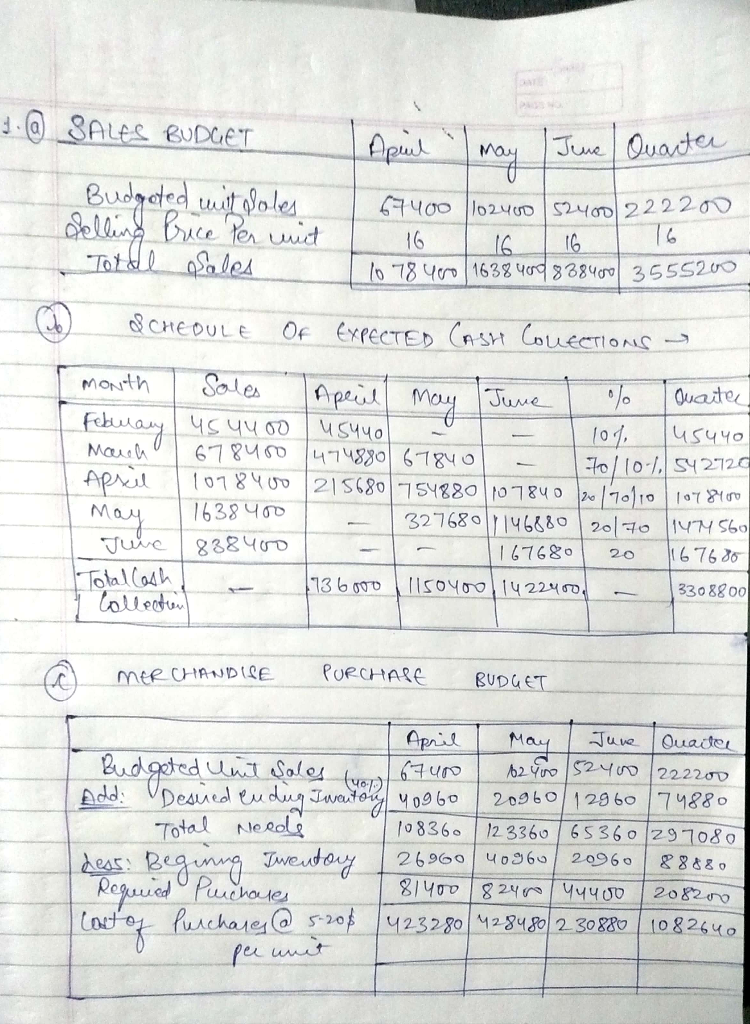 1. (a) SALES BUDGET | April | May | June | Quarter
Budgeted unit Sales | 67400 | 102400 | 52400 | 222200
Selling Price Per unit | 16 | 16 | 16 | 16
Total Sales | 1078400 | 1638400 | 838400 | 3555200
(b) SCHEDULE OF EXPECTED CASH COLLECTIONS →
MONTH | Sales | April | May | June | % | Quarter
February | 454400 | 45440 | – | – | 10%. | 45440
March | 678400 | 474880 | 67840 | – | 70/10%. | 542720
April | 1078400 | 215680 | 754880 | 107840 | 20/70/10 | 1078400
May | 1638400 | – | 327680 | 1146880 | 20/70 | 1474560
June | 838400 | – | – | 167680 | 20 | 167680
Total Cash Collection | – | 736000 | 1150400 | 1422400 | – | 3308800
(c) MERCHANDISE PURCHASE BUDGET
April | May | June | Quarter
Budgeted Unit Sales | 67400 | 102400 | 52400 | 222200
Add: Desired ending Inventory (40%) | 40960 | 20960 | 12960 | 74880
Total Needs | 108360 | 123360 | 65360 | 297080
Less: Begining Inventory | 26960 | 40960 | 20960 | 88880
Required Purchases | 81400 | 82400 | 44400 | 208200
Cost of Purchases @ 5.20$ | 423280 | 428480 | 230880 | 1082640
per unit